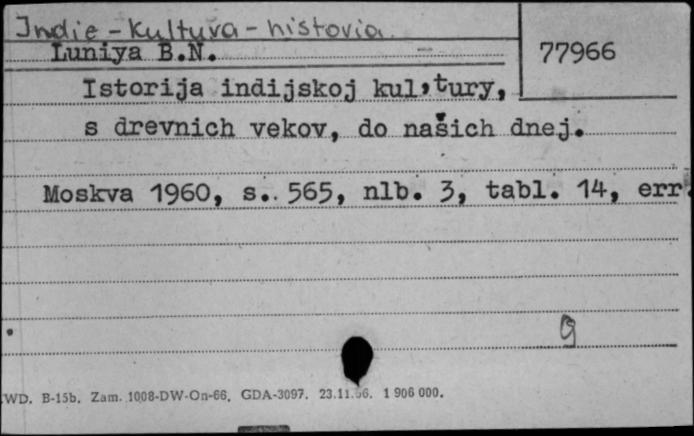 Indie - kultura - historia.
77966
Luniya B.N.
Istorija indijskoj kul'tury,
s drevnich vekov, do našich dnej.
Moskva 1960, s. 565, nlb. 3, tabl. 14, err.
9
WD. B-15b. Zam. 1008-DW-On-66. GDA-3097. 23.11.66. 1 906 000.